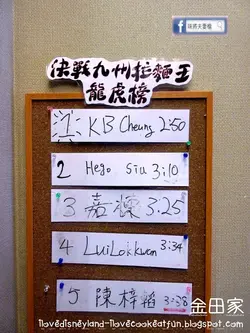 決戰九州拉麵王
龍虎榜
1 KB Cheung 2:50
2 Hego Siu 3:10
3 嘉 3:25
4 Lui Lok Kwan 3:34
5 陳梓 3:38
金田家
ilovedisneyland-ilovecookeatfun.blogspot.com